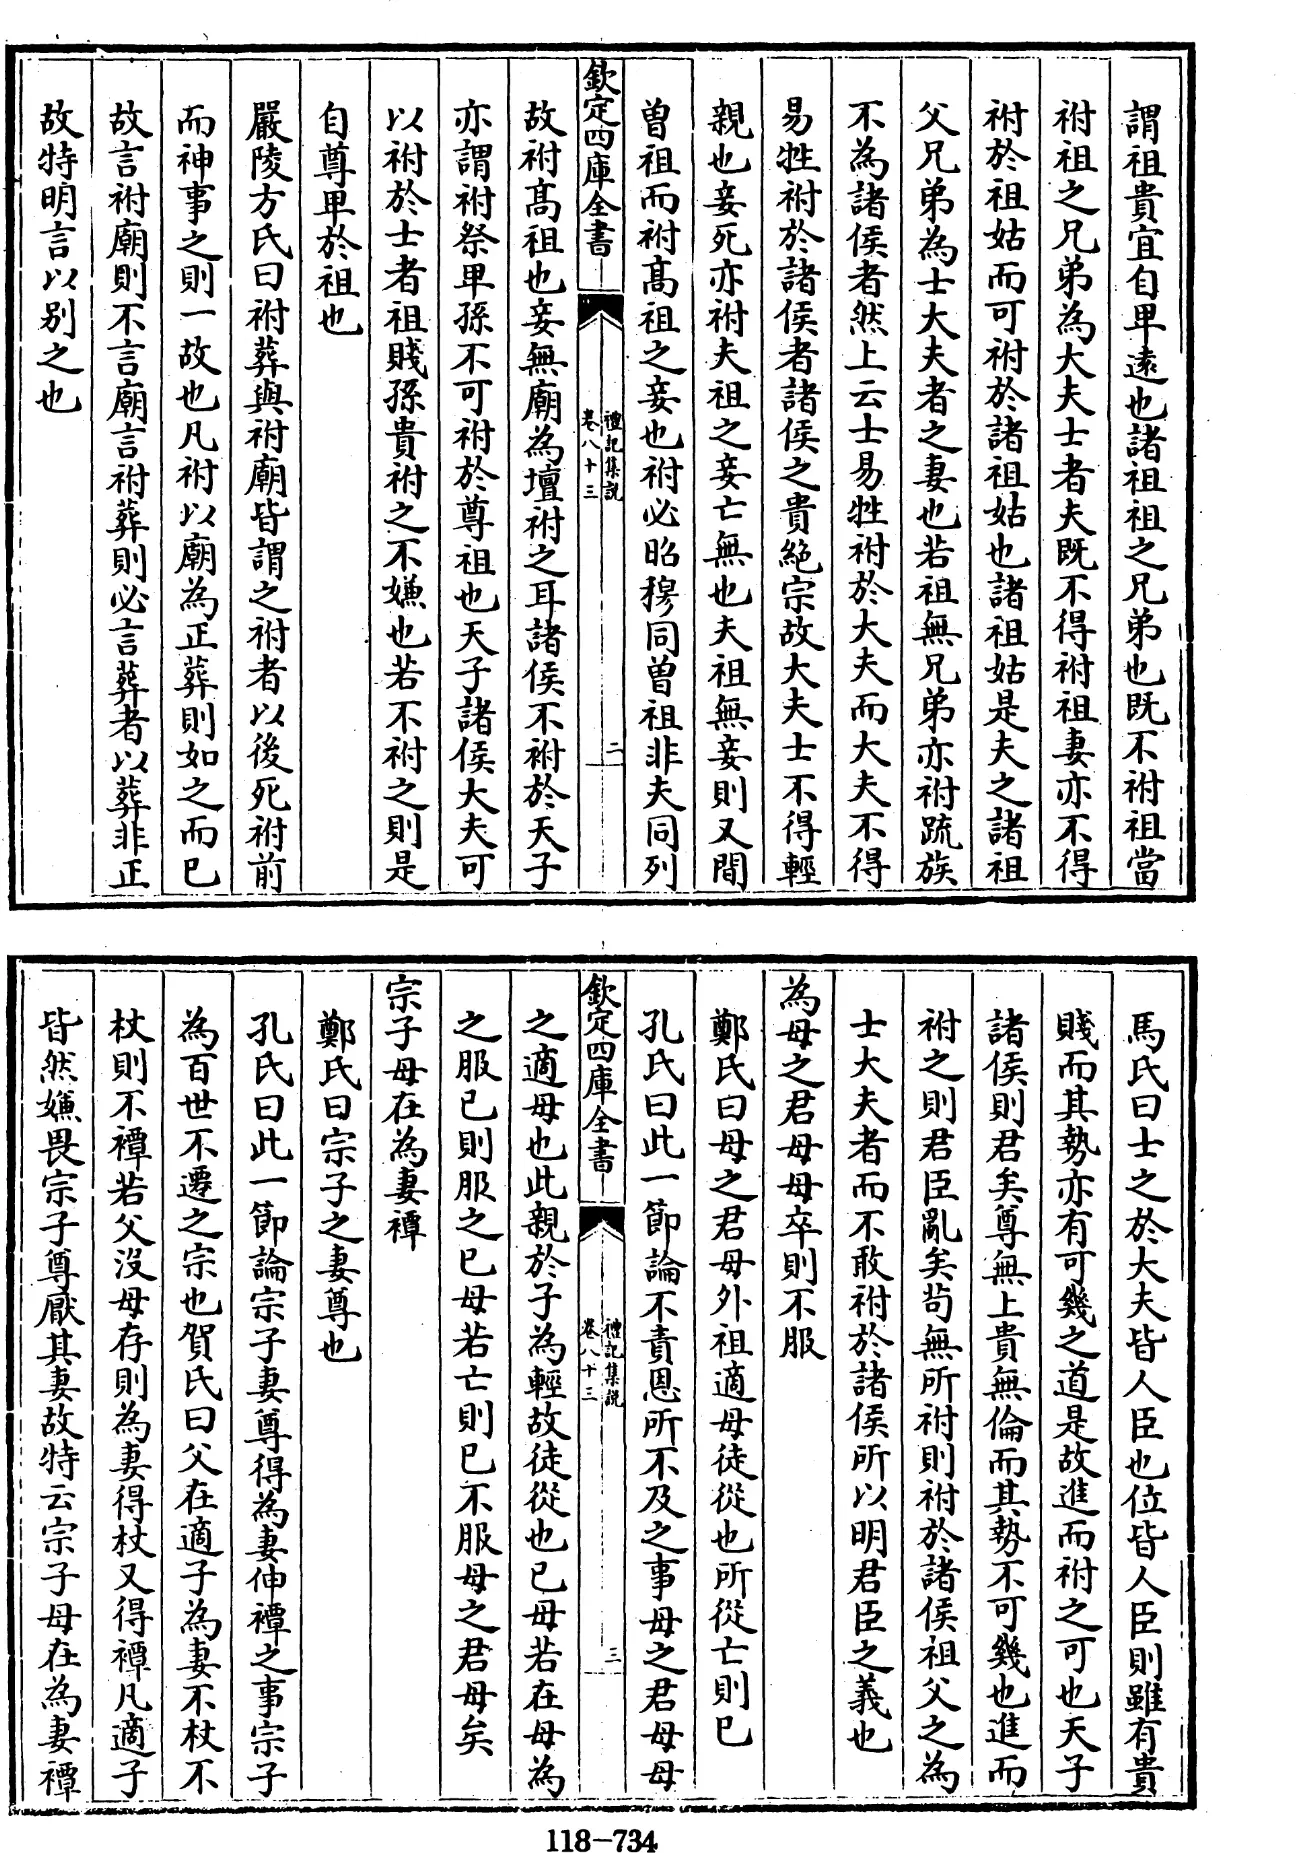 謂祖貴宜自卑逺也諸祖祖之兄弟也既不祔祖當
祔祖之兄弟為大夫士者夫既不得祔祖妻亦不得
祔於祖姑而可祔於諸祖姑也諸祖姑是夫之諸祖
父兄弟為士大夫者之妻也若祖無兄弟亦祔䟽族
不為諸侯者然上云士易牲祔於大夫而大夫不得
易牲祔於諸侯者諸侯之貴絶宗故大夫士不得輕
親也妾死亦祔夫祖之妾亡無也夫祖無妾則又間
曽祖而祔髙祖之妾也祔必昭穆同曽祖非夫同列
欽定四庫全書
禮記集説
卷八十三
二
故祔髙祖也妾無廟為壇祔之耳諸侯不祔於天子
亦謂祔祭卑孫不可祔於尊祖也天子諸侯大夫可
以祔於士者祖賤孫貴祔之不嫌也若不祔之則是
自尊卑於祖也
嚴陵方氏曰祔葬與祔廟皆謂之祔者以後死祔前
而神事之則一故也凡祔以廟為正葬則如之而已
故言祔廟則不言廟言祔葬則必言葬者以葬非正
故特明言以別之也
馬氏曰士之於大夫皆人臣也位皆人臣則雖有貴
賤而其勢亦有可幾之道是故進而祔之可也天子
諸侯則君矣尊無上貴無倫而其勢不可幾也進而
祔之則君臣亂矣茍無所祔則祔於諸侯祖父之為
士大夫者而不敢祔於諸侯所以明君臣之義也
為母之君母母卒則不服
鄭氏曰母之君母外祖適母徒從也所從亡則已
孔氏曰此一節論不責恩所不及之事母之君母母
欽定四庫全書
禮記集説
卷八十三
三
之適母也此親於子為輕故徒從也已母若在母為
之服已則服之已母若亡則已不服母之君母矣
宗子母在為妻禫
鄭氏曰宗子之妻尊也
孔氏曰此一節論宗子妻尊得為妻伸禫之事宗子
為百世不遷之宗也賀氏曰父在適子為妻不杖不
杖則不禫若父沒母存則為妻得杖又得禫凡適子
皆然嫌畏宗子尊厭其妻故特云宗子母在為妻禫
118-734